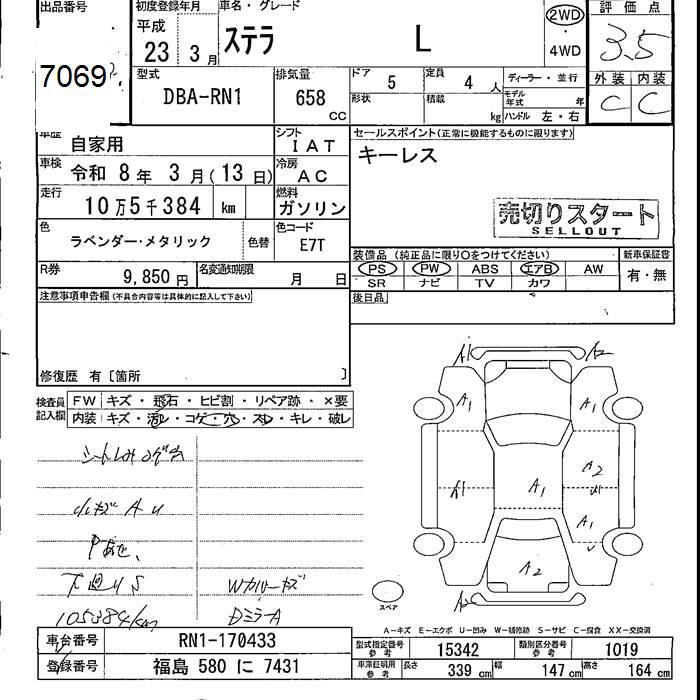 出品番号
7069
初度登録年月
平成
23 3 月
車名・グレード
ステラ L
2WD
・
4WD
評価点
3.5
外装 内装
C C
型式
DBA-RN1
排気量
658
CC
ドア
5
定員
4 人
形状
積載
kg
ディーラー・並行
モデル年式 年
ハンドル 左・右
車歴
自家用
シフト
IAT
車検
令和 8 年 3 月(13 日)
冷房
AC
走行
10万5千384 km
燃料
ガソリン
色
ラベンダー・メタリック
色替
色コード
E7T
R券
9,850 円
名変通知期限
月 日
セールスポイント(正常に機能するものに限ります)
キーレス
売切りスタート
SELLOUT
装備品 (純正品に限り○をつけてください)
PS PW ABS エアB AW
SR ナビ TV カワ
新車保証書
有・無
後日品
注意事項申告欄(不具合内容等は具体的に記入して下さい)
修復歴 有〔箇所 〕
検査員記入欄
FW キズ・飛石・ヒビ割・リペア跡・×要
内装 キズ・汚レ・コゲ・穴・スレ・キレ・破レ
シートしみコゲ穴
小キズ A U
Pあせ、
下廻りS
105384km
Wカバーキズ
DミラーA
A1 A2
A1 A1
A1 A1 A2
A1
A2
A2
スペア
A-キズ E-エクボ U-凹み W-補修跡 S-サビ C-腐食 XX-交換済
車台番号
RN1-170433
登録番号
福島 580 に 7431
型式指定番号
参考
15342
類別区分番号
参考
1019
車庫証明用
参考
長さ 339 cm
幅 147 cm
高さ 164 cm